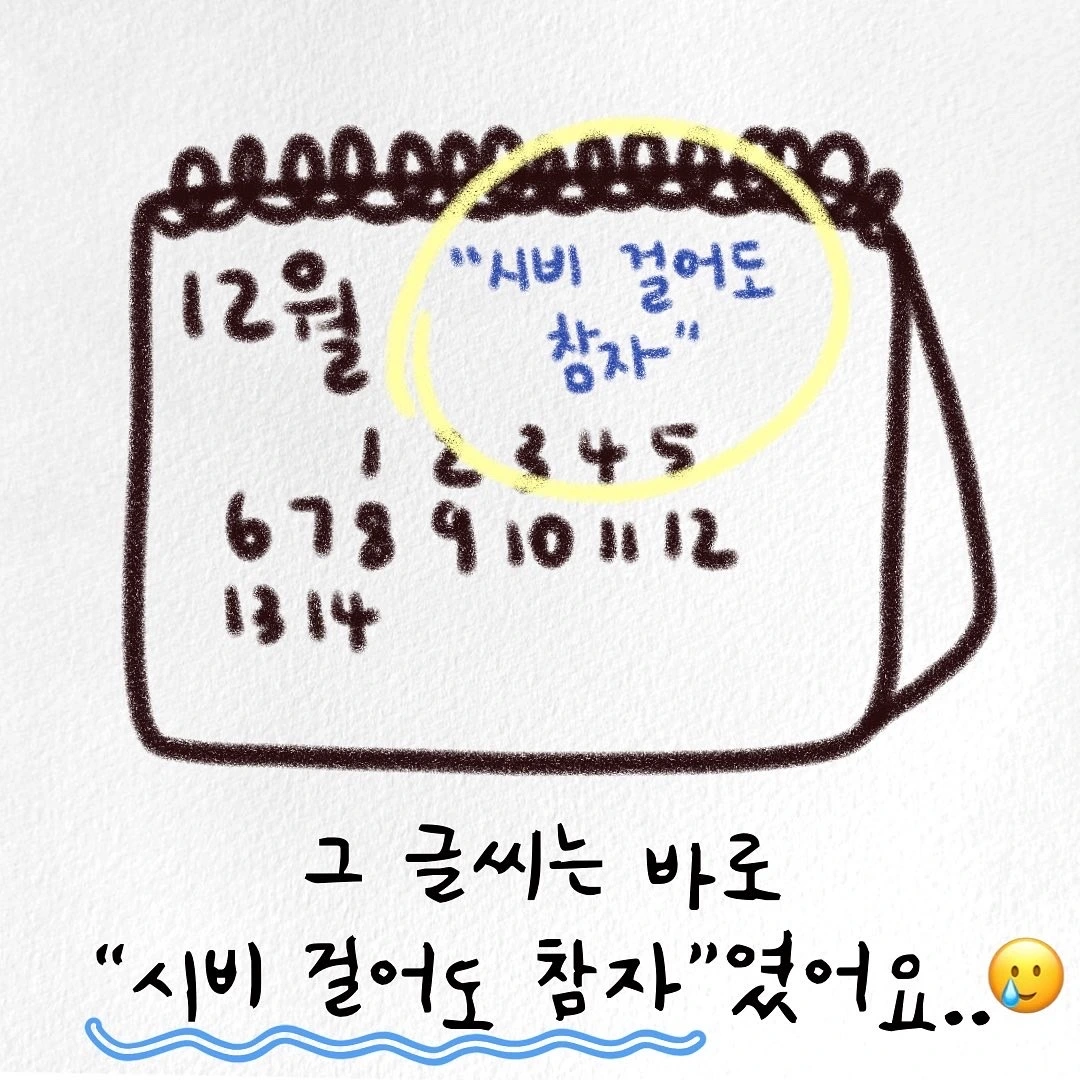 12월
"시비 걸어도
참자"
1 2 3 4 5
6 7 8 9 10 11 12
13 14
그 글씨는 바로
“시비 걸어도 참자”였어요..🥲